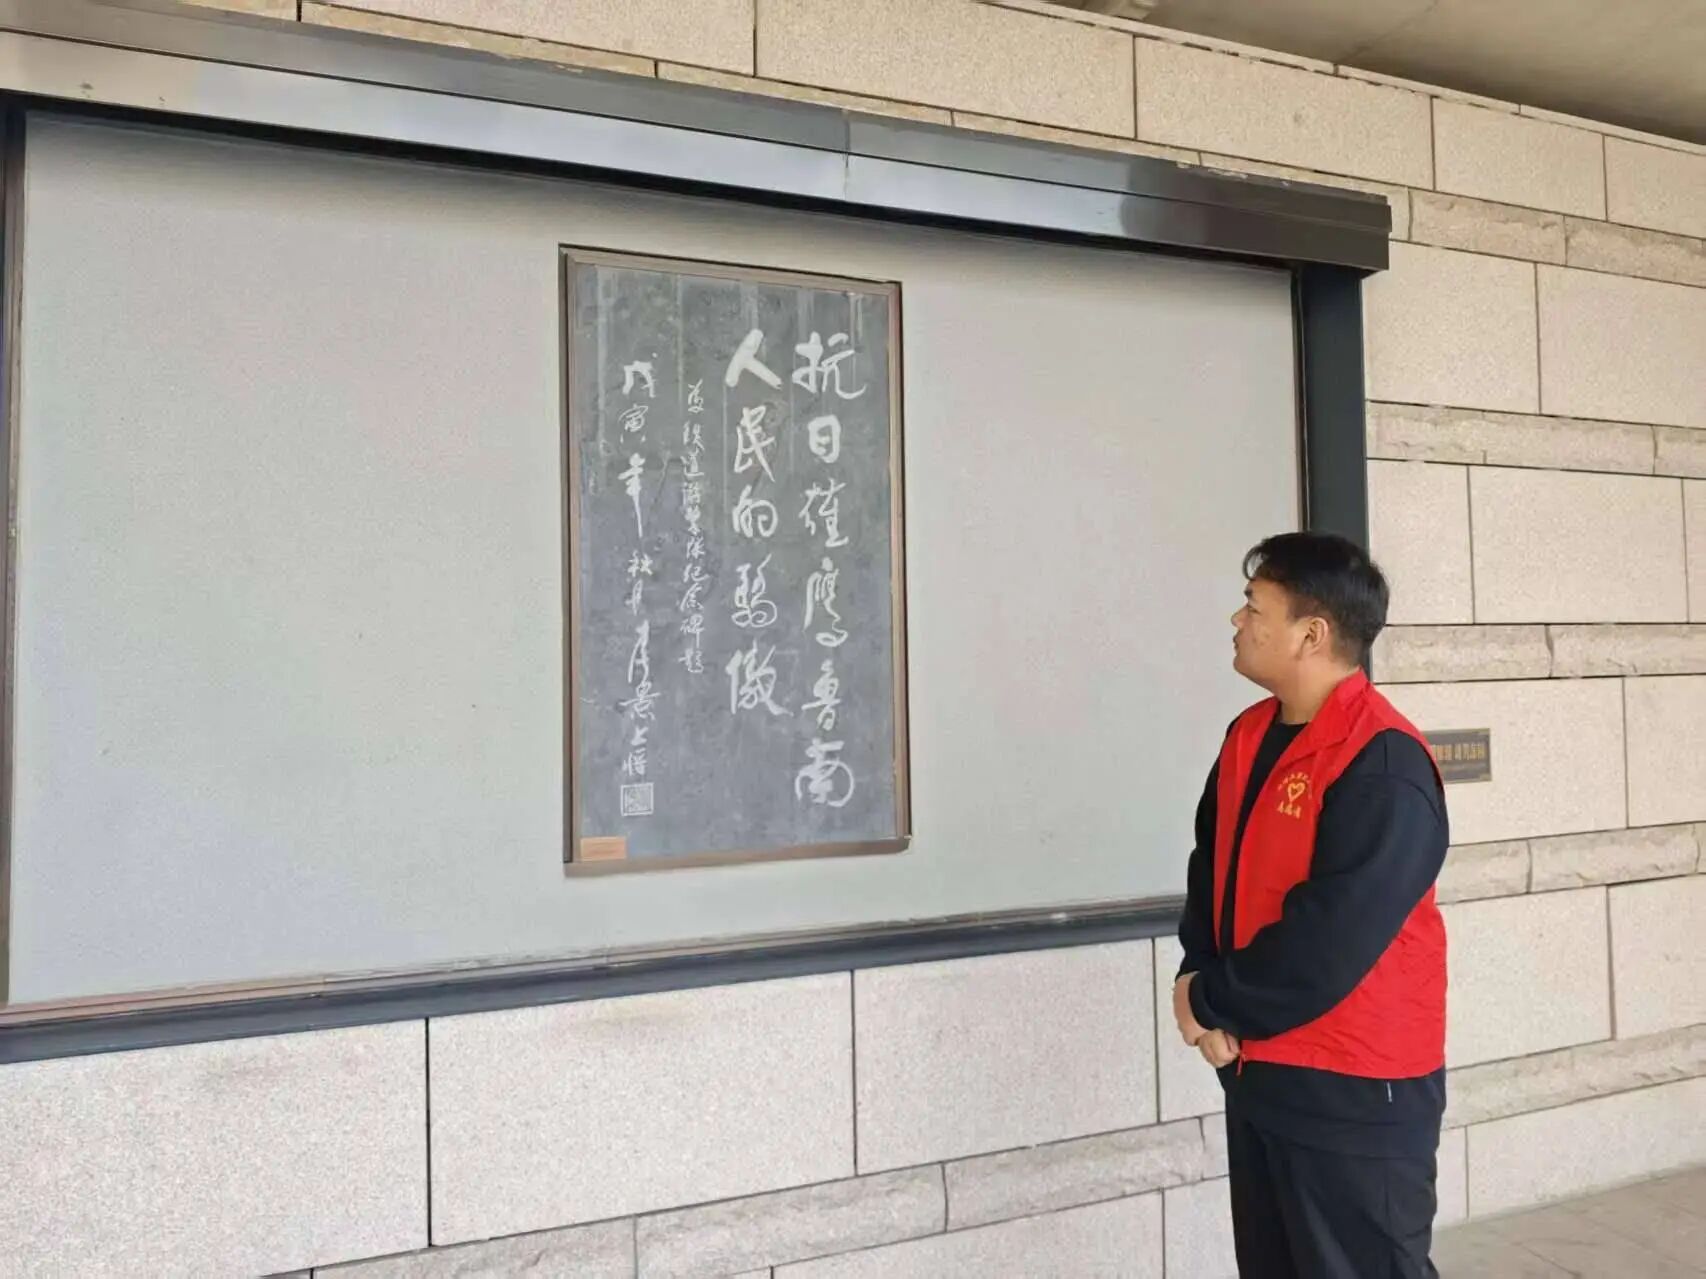 抗日雄鹰鲁南
人民的骄傲
为铁道游击队纪念碑题
戊寅年秋月李景上将